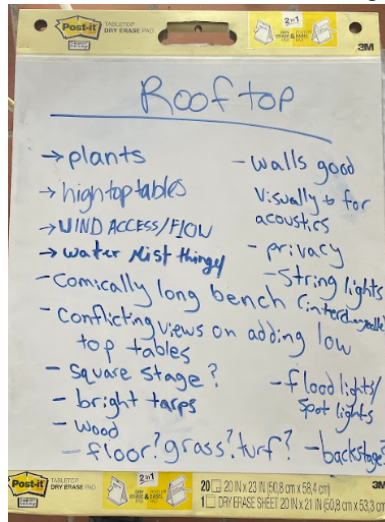 Post-it
TABLETOP
DRY ERASE PAD
2in1
3M
Rooftop
→ plants
→ hightop tables
→ WIND ACCESS/FLOW
→ water Mist thingy
- Comically long bench
- conflicting views on adding low
top tables
- square stage?
- bright tarps
- wood
- floor? grass? turf?
- walls good
visually & for
acoustics
- privacy
- String lights
(interchangeable)
- flood lights/
spot lights
- backstage?
Post-it
TABLETOP
DRY ERASE PAD
2in1
20 20 IN x 23 IN (50,8 cm x 58,4 cm)
1 DRY ERASE SHEET 20 IN x 21 IN (50,8 cm x 53,3 cm)
3M